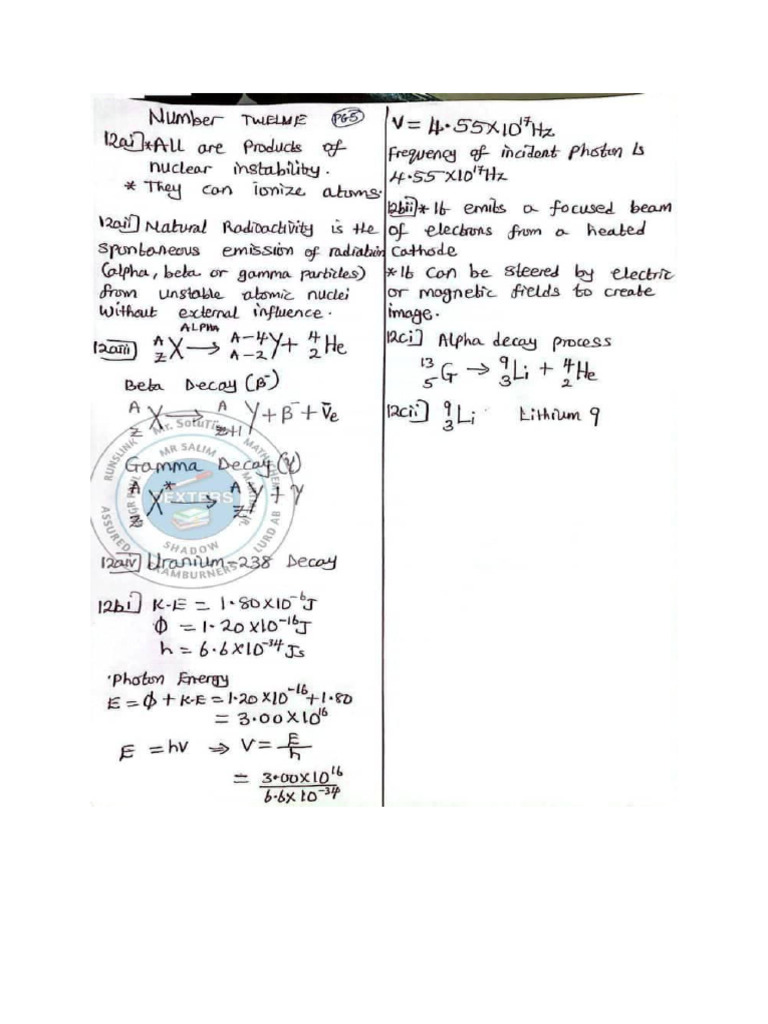 Number TWELVE PG5
12ai] *All are products of
nuclear instability.
* They can ionize atoms.
12aii] Natural Radioactivity is the
spontaneous emission of radiation
(alpha, beta or gamma particles)
from unstable atomic nuclei
without external influence.
ALPHA
12aiii] ᴬ_Z X → ᴬ⁻⁴_A-2 Y + ⁴₂He
Beta Decay (β⁻)
ᴬ_Z X → ᴬ_Z+1 Y + β⁻ + V̄e
Gamma Decay (γ)
ᴬ_Z X* → ᴬ_Z Y + γ
12aiv] Uranium-238 Decay
12bi] K.E = 1.80×10⁻⁶J
Φ = 1.20×10⁻¹⁶J
h = 6.6×10⁻³⁴Js
·Photon Energy
E = Φ + K.E = 1.20×10⁻¹⁶+1.80
= 3.00×10¹⁶
E = hv ⇒ V = E/h
= 3.00×10¹⁶
6.6×10⁻³⁴
V = 4.55×10¹⁷Hz
Frequency of incident photon is
4.55×10¹⁷Hz
12bii] * It emits a focused beam
of electrons from a heated
cathode
* It can be steered by electric
or magnetic fields to create
image.
12ci] Alpha decay process
¹³₅G → ⁹₃Li + ⁴₂He
12cii] ⁹₃Li Lithium 9
Mr. SoluTi
MR SALIM
DEXTERS
SHADOW
RUNSLINK
ASSURED
LURD AB